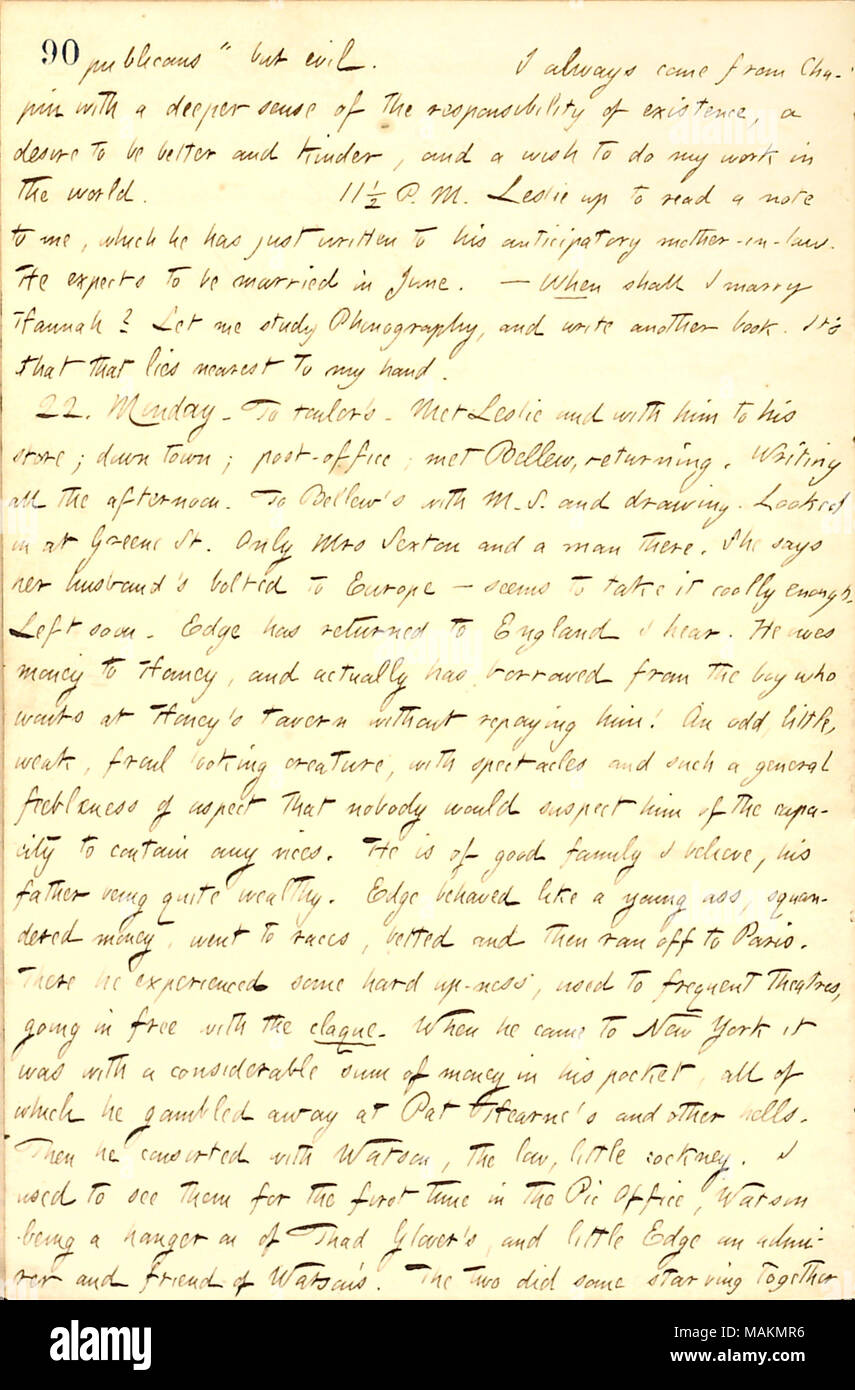 90 publicans" but evil. I always come from Cha-
pin with a deeper sense of the responsibility of existence, a
desire to be better and kinder, and a wish to do my work in
the world. 11½ P.M. Leslie up to read a note
to me, which he has just written to his anticipatory mother-in-law.
He expects to be married in June. — When shall I marry
Hannah? Let me study Phonography, and write another book. It's
that that lies nearest to my hand.
22. Monday. To tailor's. Met Leslie and with him to his
store; down town; post-office; met Bellew, returning. Writing
all the afternoon. To Bellew's with M.S. and drawing. Looked
in at Greene St. Only Mrs Sexton and a man there. She says
her husband's bolted to Europe — seems to take it coolly enough.
Left soon. Edge has returned to England I hear. He owes
money to Honey, and actually has borrowed from the boy who
waits at Honey's tavern without repaying him! An odd, little,
weak, frail looking creature, with spectacles and such a general
feebleness of aspect that nobody would suspect him of the capa-
city to contain any vices. He is of good family I believe, his
father being quite wealthy. Edge behaved like a young ass, squan-
dered money, went to races, betted and then ran off to Paris.
There he experienced some hard up-ness, used to frequent theatres,
going in free with the claque. When he came to New York it
was with a considerable sum of money in his pocket, all of
which he gambled away at Pat Hearne's and other hells.
Then he consorted with Watson, the low, little cockney. I
used to see them for the first time in the Pic Office, Watson
being a hanger on of Thad Glover's, and little Edge an admi-
rer and friend of Watson's. The two did some starving together
alamy
Image ID: MAKMR6
www.alamy.com